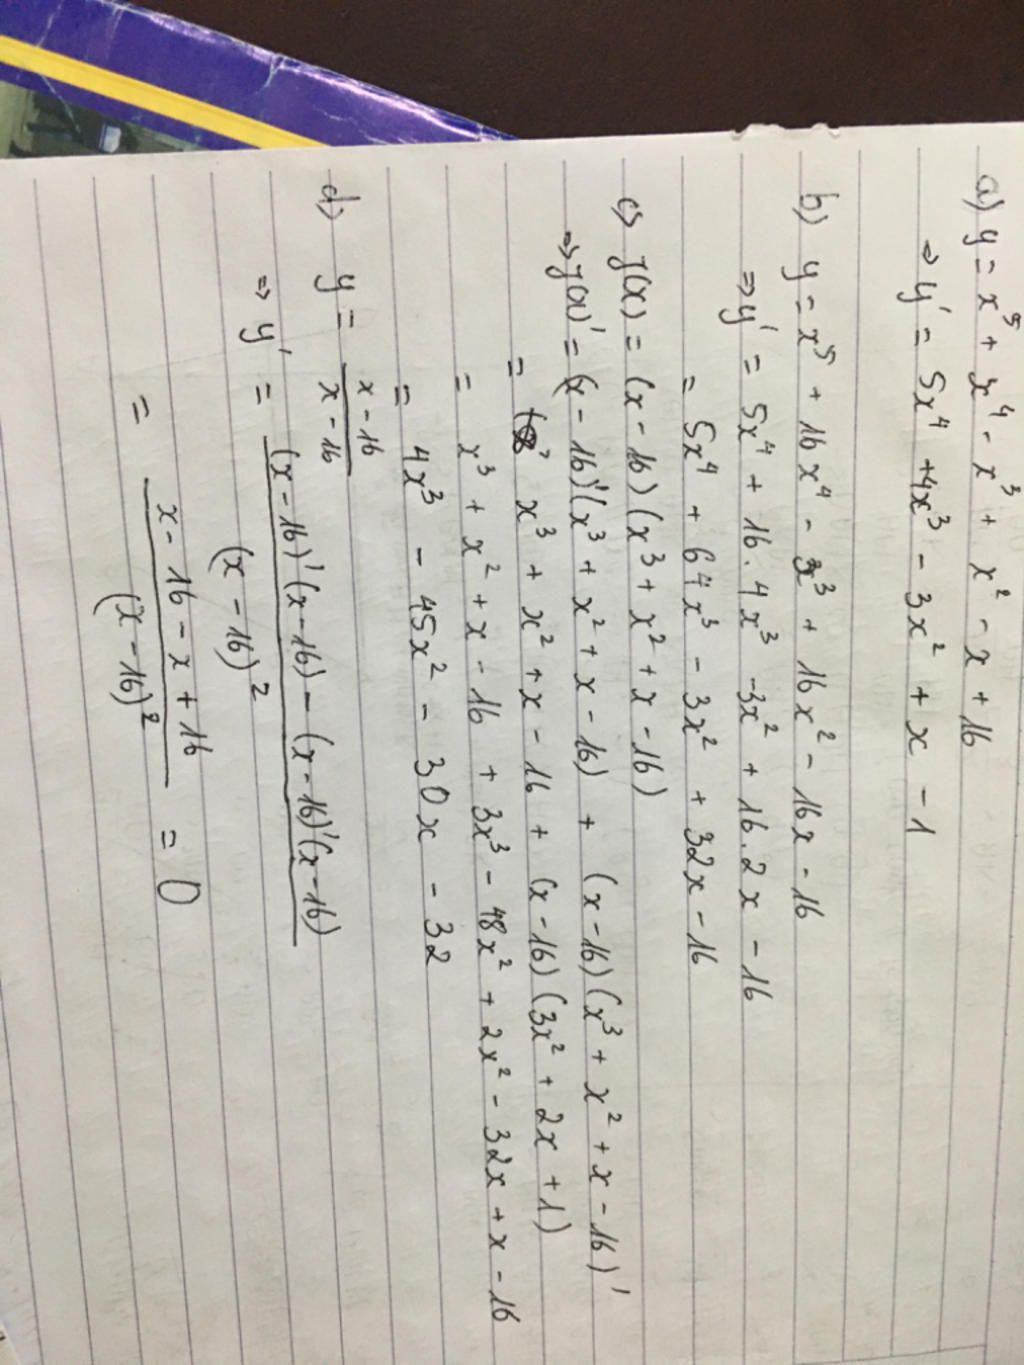 a) y = x⁵ + x⁴ - x³ + x² - x + 16
⇒ y' = 5x⁴ + 4x³ - 3x² + x - 1
b) y = x⁵ + 16x⁴ - x³ + 16x² - 16x - 16
⇒ y' = 5x⁴ + 16.4x³ - 3x² + 16.2x - 16
= 5x⁴ + 64x³ - 3x² + 32x - 16
c) y(x) = (x - 16)(x³ + x² + x - 16)
⇒ y(x)' = (x - 16)'(x³ + x² + x - 16) + (x - 16)(x³ + x² + x - 16)'
= x³ + x² + x - 16 + (x - 16)(3x² + 2x + 1)
= x³ + x² + x - 16 + 3x³ - 48x² + 2x² - 32x + x - 16
= 4x³ - 45x² - 30x - 32
d) y = x - 16
x - 16
⇒ y' = (x - 16)'(x - 16) - (x - 16)'(x - 16)
(x - 16)²
= x - 16 - x + 16 = 0
(x - 16)²